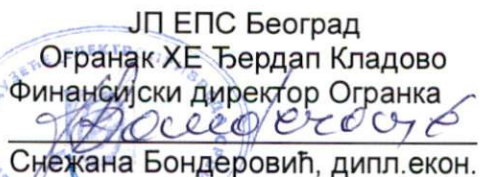 ЈП ЕПС Београд
Огранак ХЕ Ђердап Кладово
Финансијски директор Огранка
Снежана Бондеровић, дипл.екон.